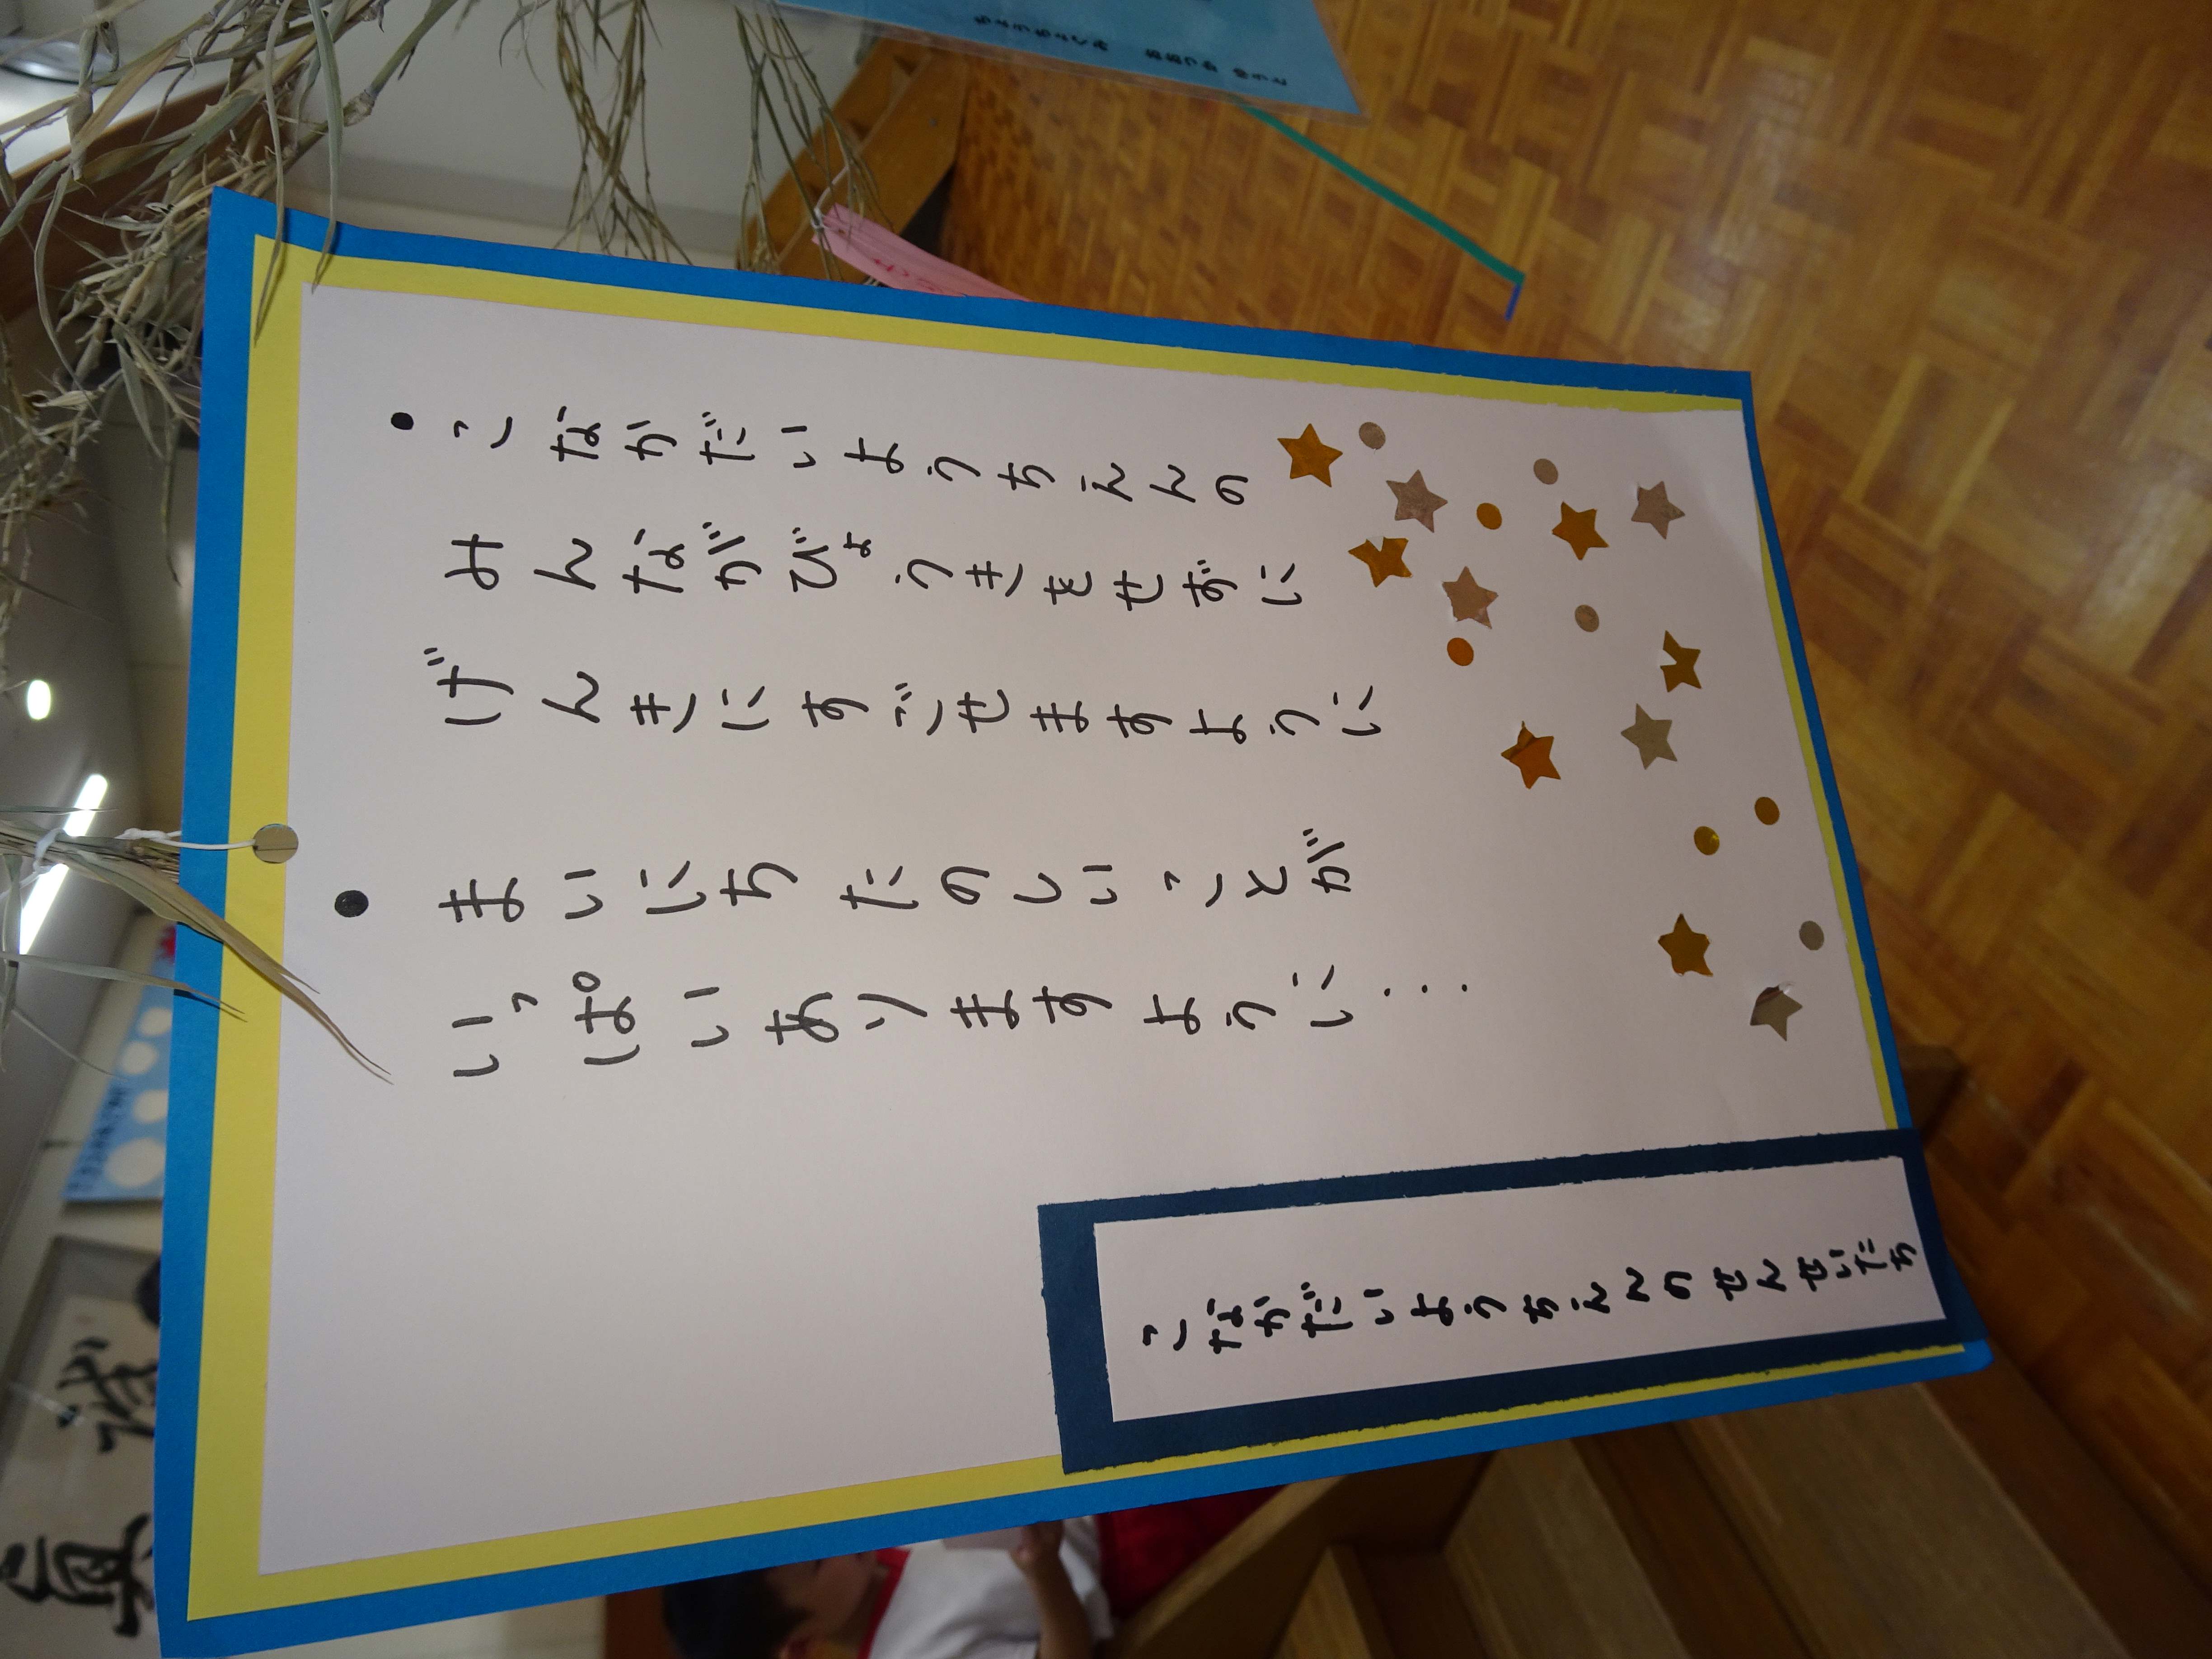 ・こなかだいようちえんの
みんながびょうきをせずに
げんきにすごせますように
・まいにちたのしいことが
いっぱいありますように...
こなかだいようちえんのせんせいたち